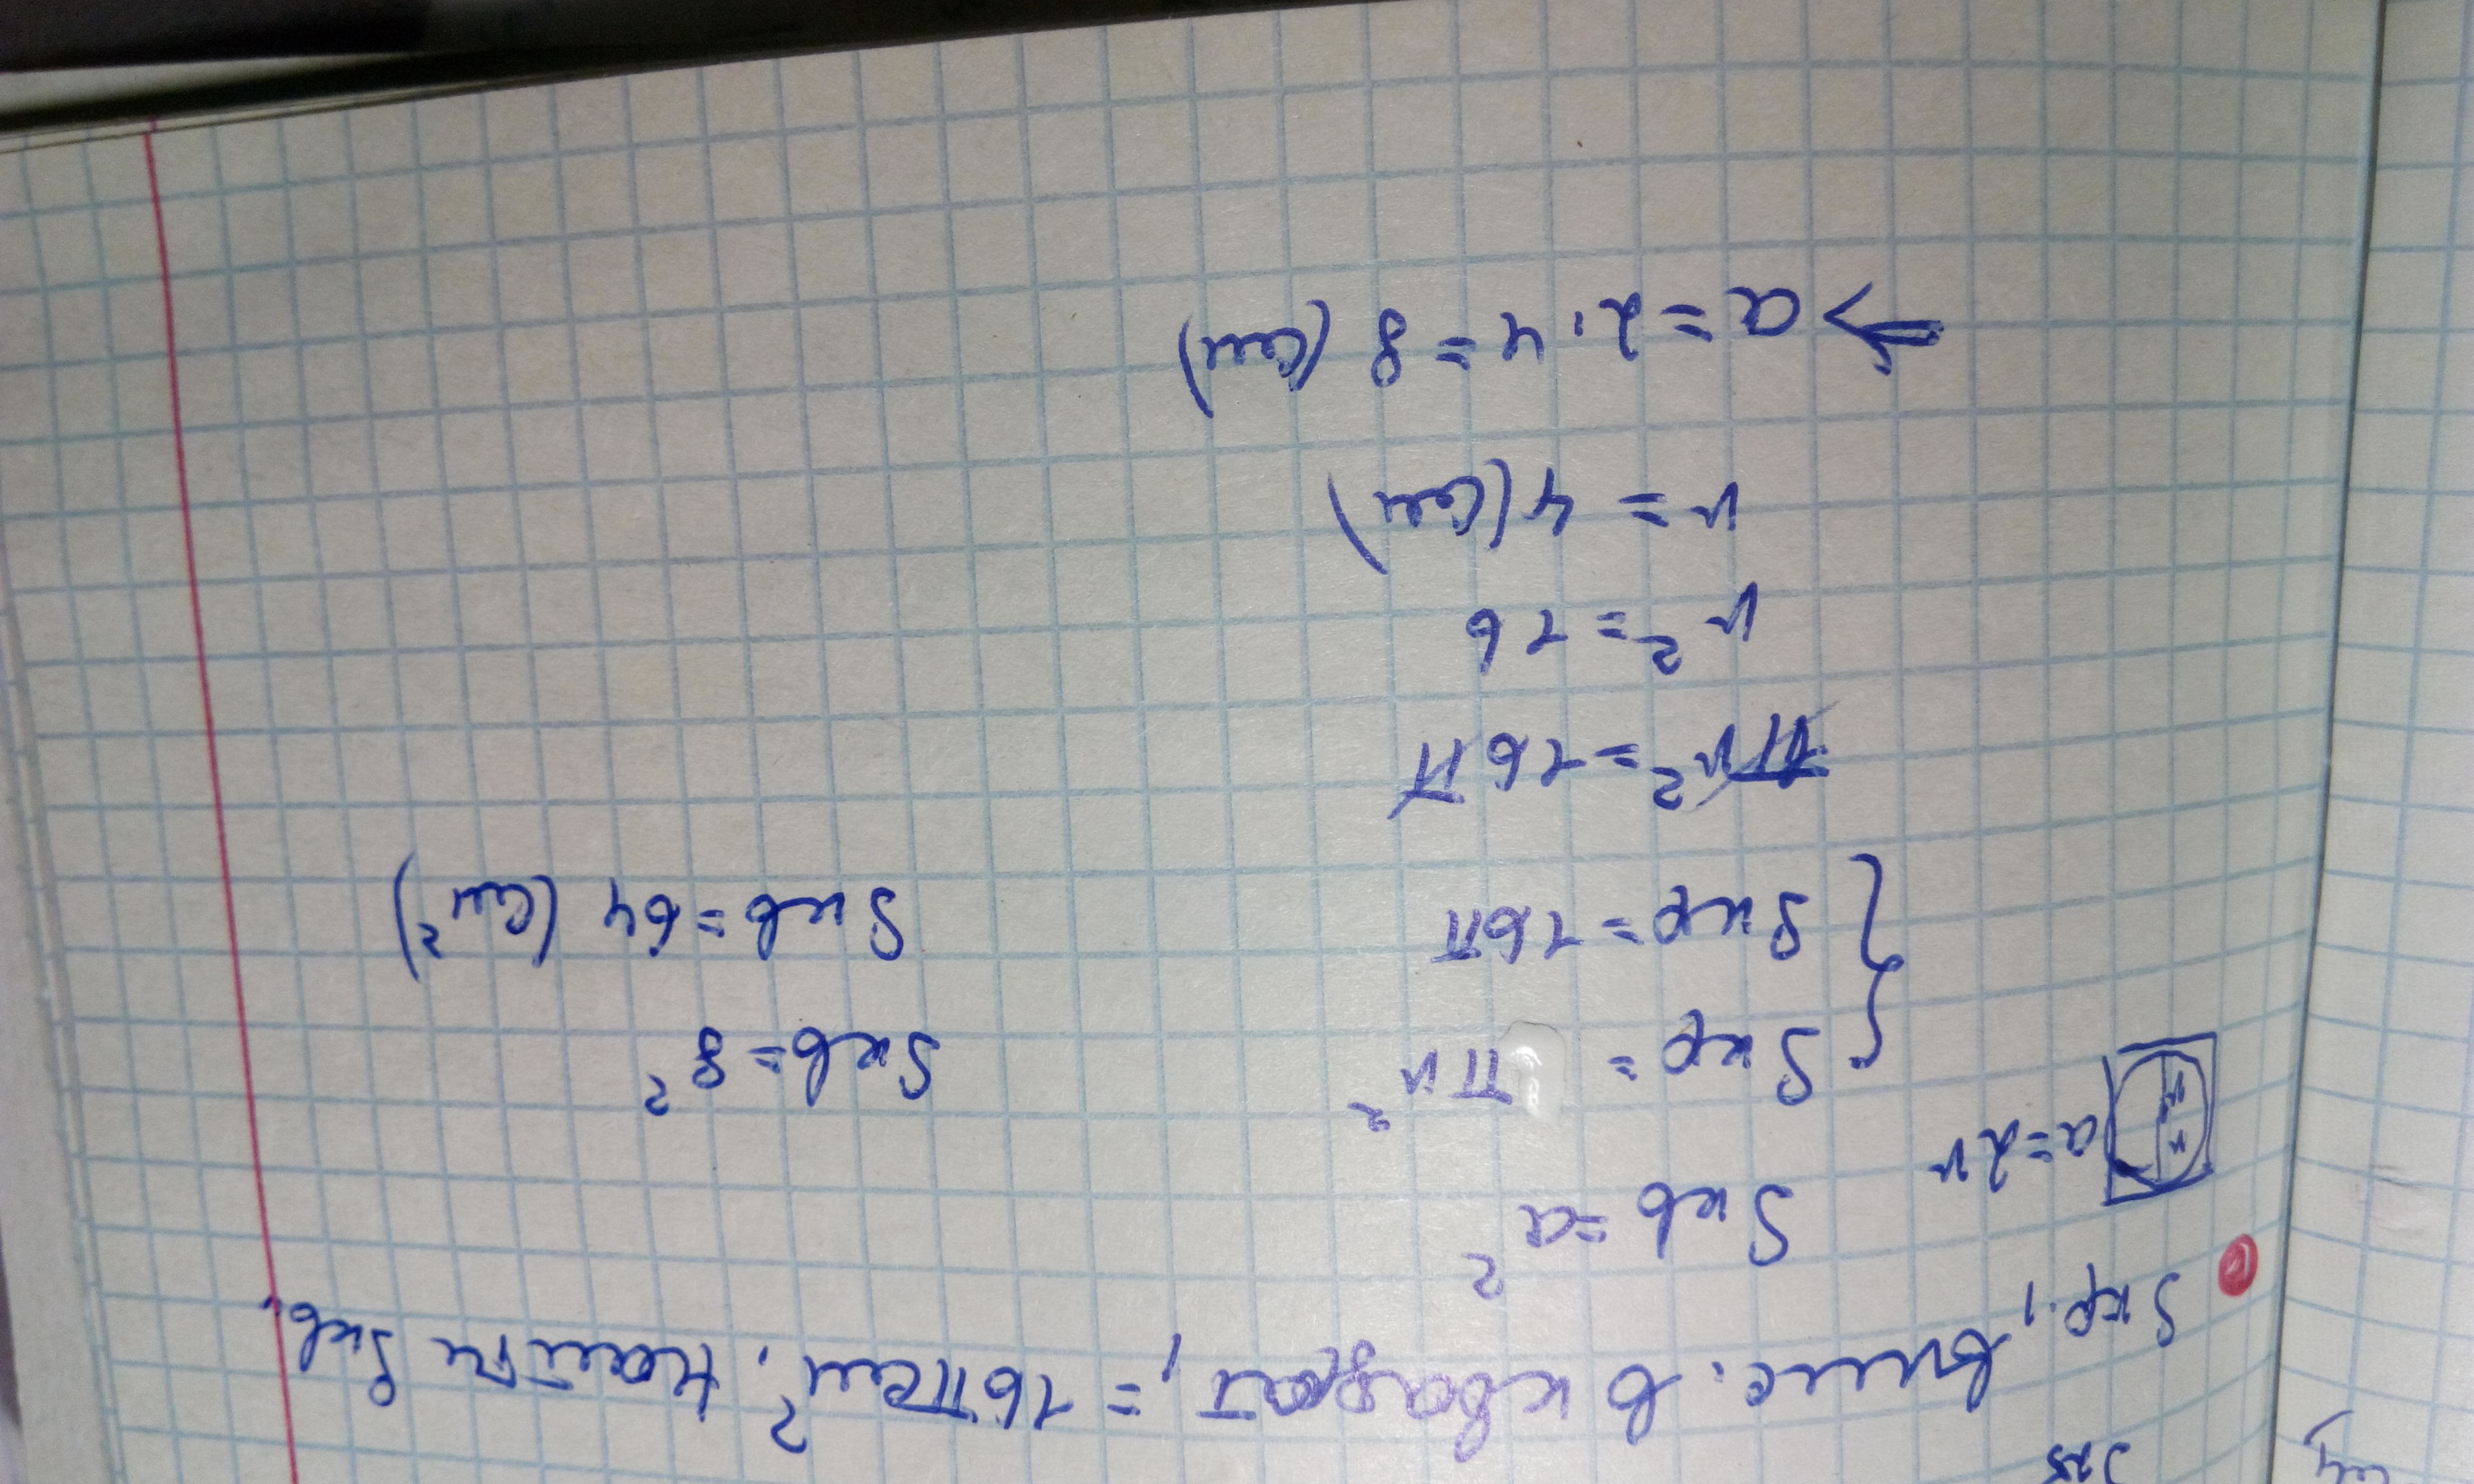 Sкр., впис. в квадрат, = 16π см². Найти Sкв.
a=2r
Sкв = a²
Sкр = πr²
Sкр = 16π
πr² = 16π
r² = 16
r = 4 (см)
a = 2·4 = 8 (см)
Sкв = 8²
Sкв = 64 (см²)